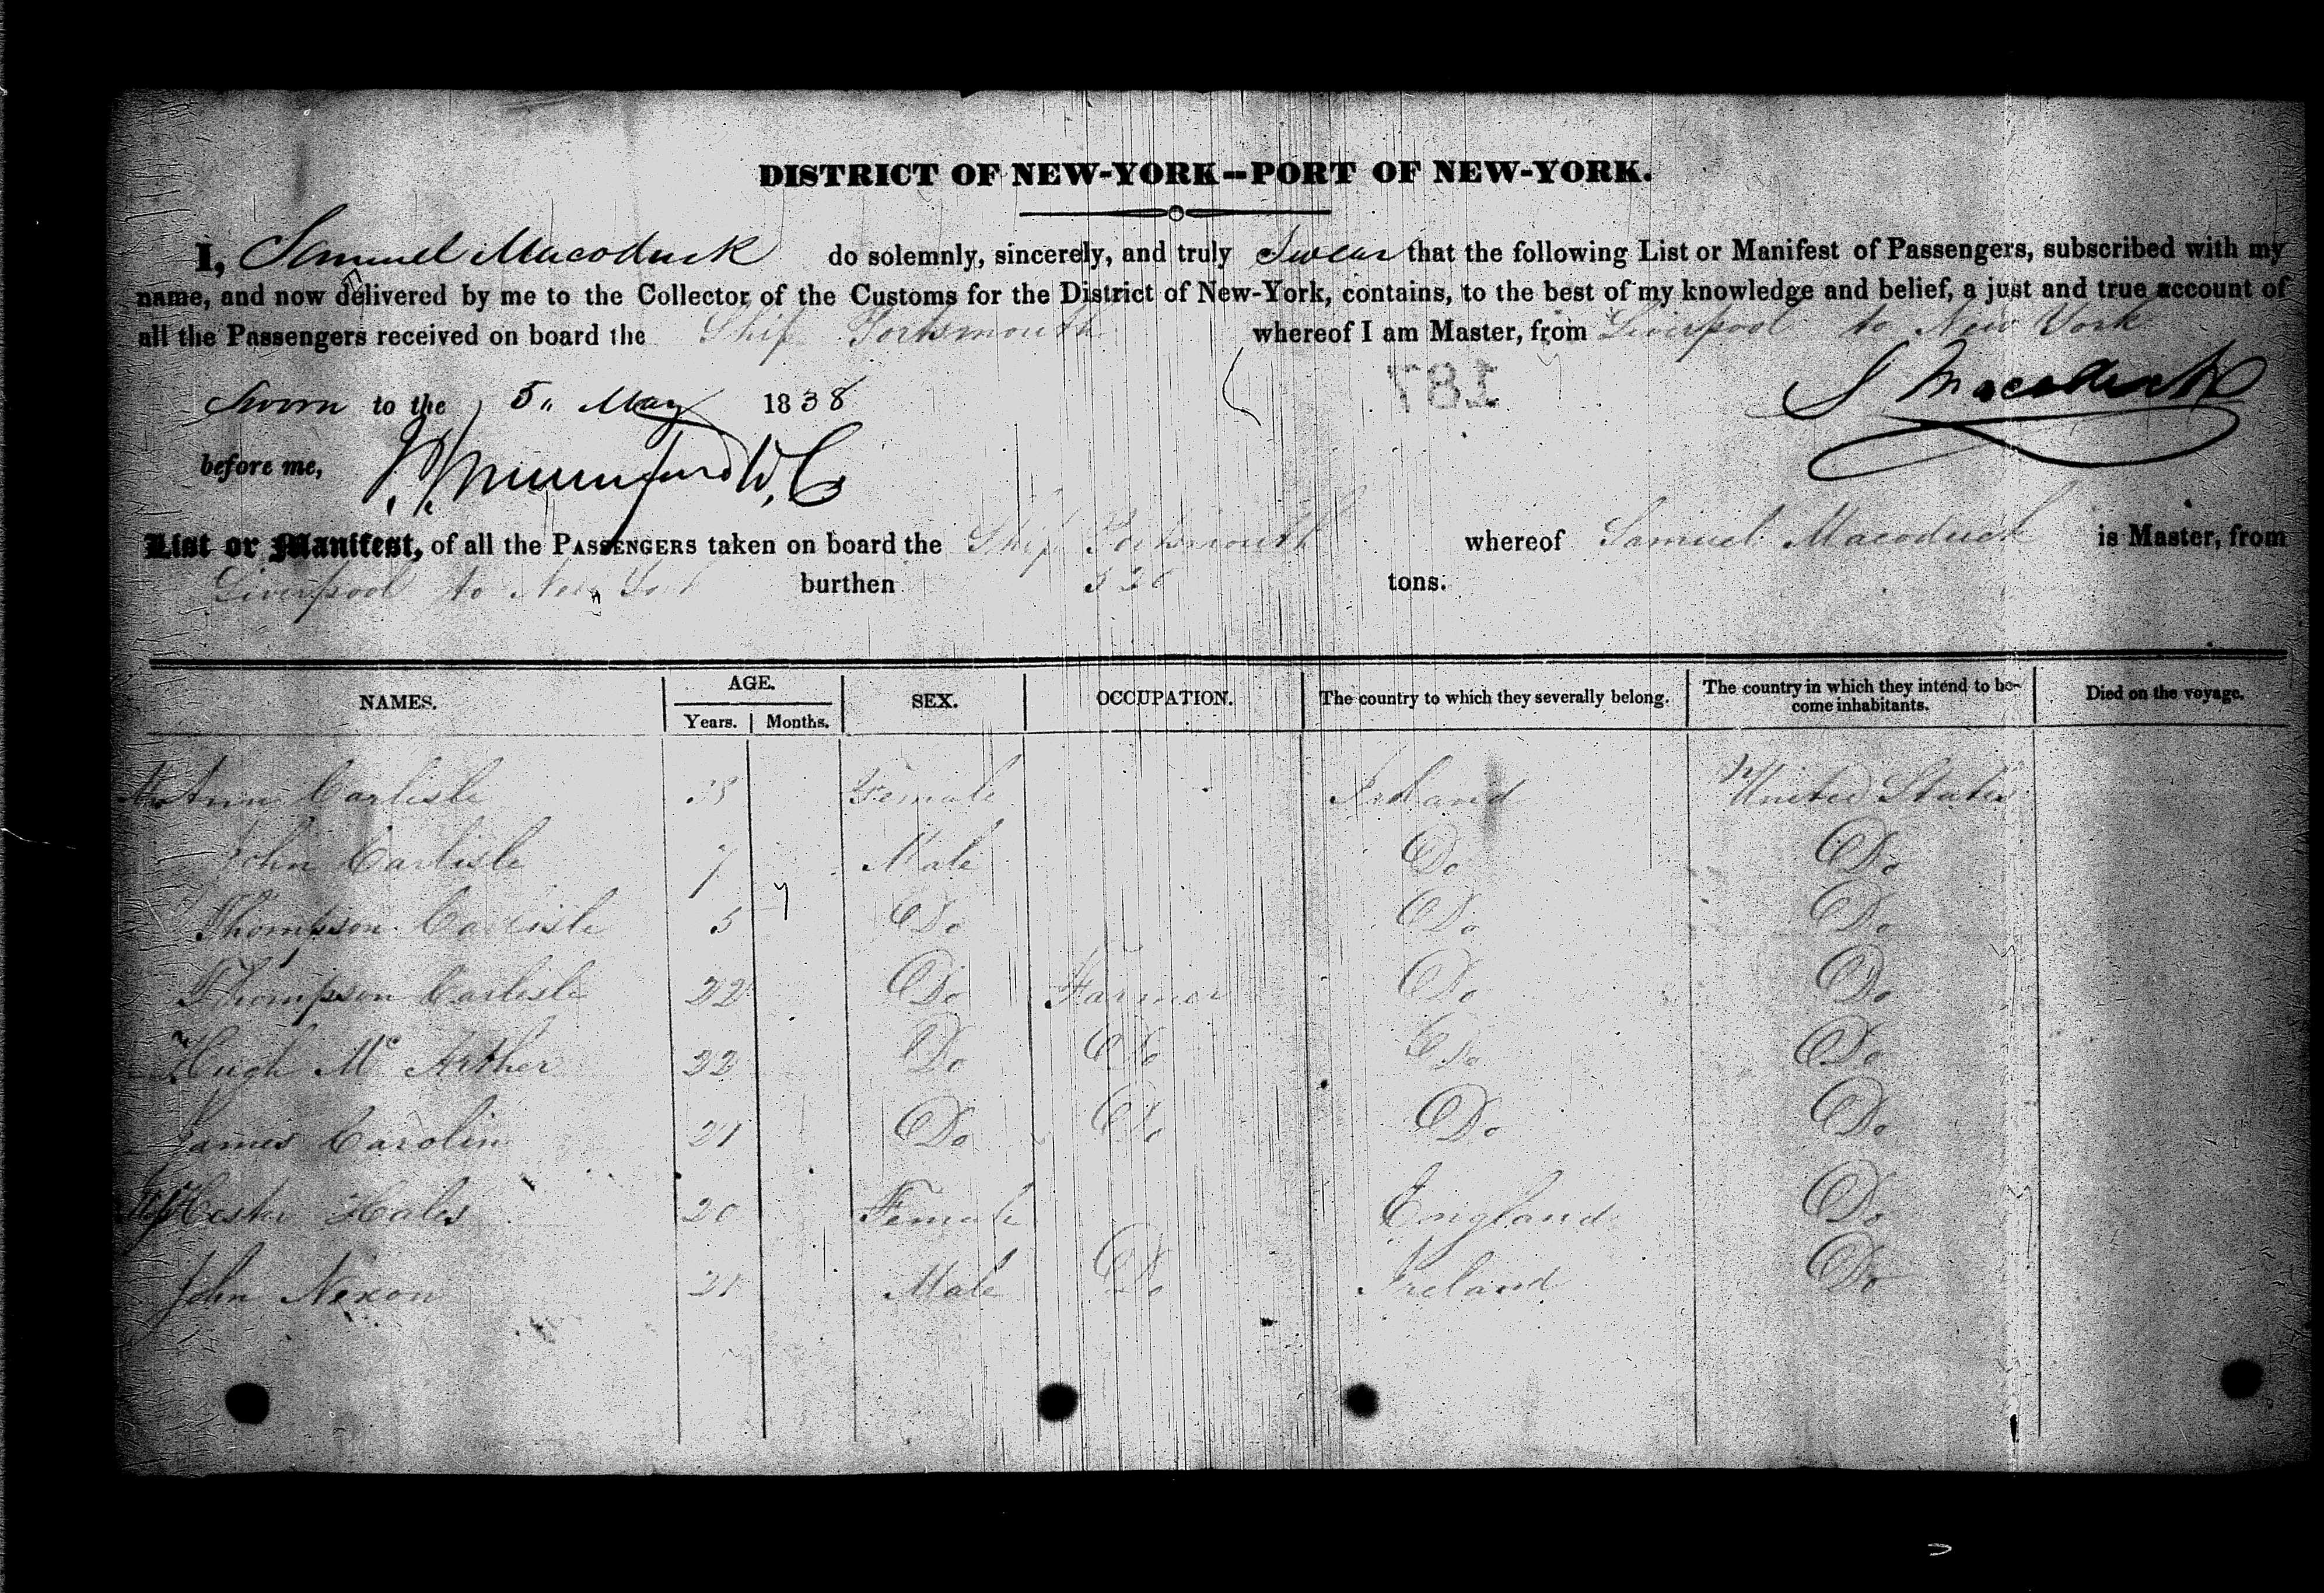 DISTRICT OF NEW-YORK--PORT OF NEW-YORK.
I, Samuel Macoduck do solemnly, sincerely, and truly Swear that the following List or Manifest of Passengers, subscribed with my
name, and now delivered by me to the Collector of the Customs for the District of New-York, contains, to the best of my knowledge and belief, a just and true account of
all the Passengers received on board the Ship Portsmouth whereof I am Master, from Liverpool to New York
187
S Macoduck
Sworn to the 5 " May 1838
before me,
List or Manifest, of all the PASSENGERS taken on board the Ship Portsmouth whereof Samuel Macoduck is Master, from
Liverpool to New York burthen 520 tons.
NAMES. AGE. Years. Months. SEX. OCCUPATION. The country to which they severally belong. The country in which they intend to be-come inhabitants. Died on the voyage.
Ann Carlisle Female Ireland United States
John Carlisle 7 Male Do Do
Thompson Carlisle 5 Do Do Do
Thompson Carlisle 22 Do Farmer Do Do
Hugh Mc Arther 22 Do Do Do Do
James Carolin 21 Do Do Do Do
Hester Hales 20 Female England Do
John Nixon 21 Male Do Ireland Do